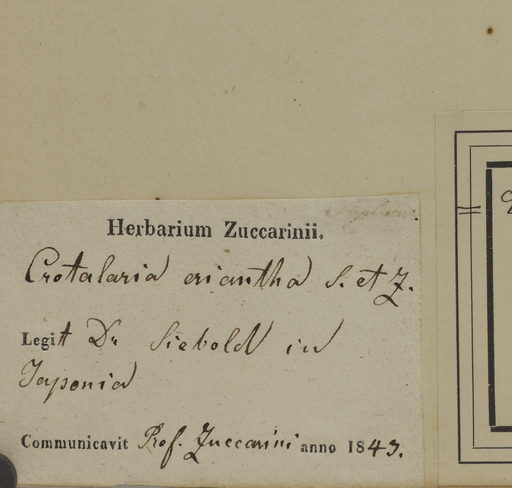 Herbarium Zuccarinii.
Crotalaria eriantha S. et Z.
Legit Dr Siebold in
Japonia
Communicavit Prof. Zuccarini anno 1843.